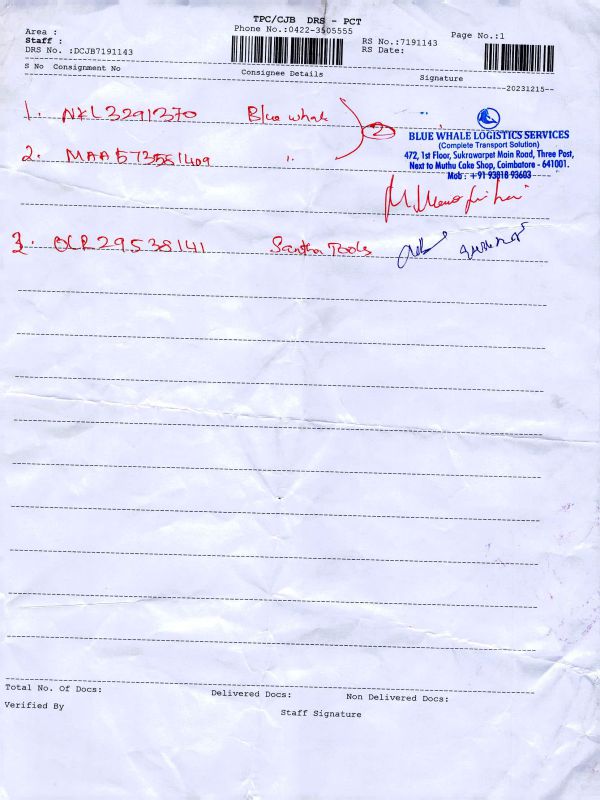 TPC/CJB DRS - PCT
Area :
Phone No.:0422-3505555
Page No.:1
Staff :
RS No.:7191143
DRS No. :DCJB7191143
RS Date:
S No Consignment No
Consignee Details
Signature
20231215
1. NXL3291370 Blue whale
2
BLUE WHALE LOGISTICS SERVICES
(Complete Transport Solution)
472, 1st Floor, Sukrawarpet Main Road, Three Post,
Next to Muthu Cake Shop, Coimbatore - 641001.
Mob : +91 93818 93603
2. MAA573551409 "
3. OLR29538141 Santha Tools
Total No. Of Docs:
Delivered Docs:
Non Delivered Docs:
Verified By
Staff Signature